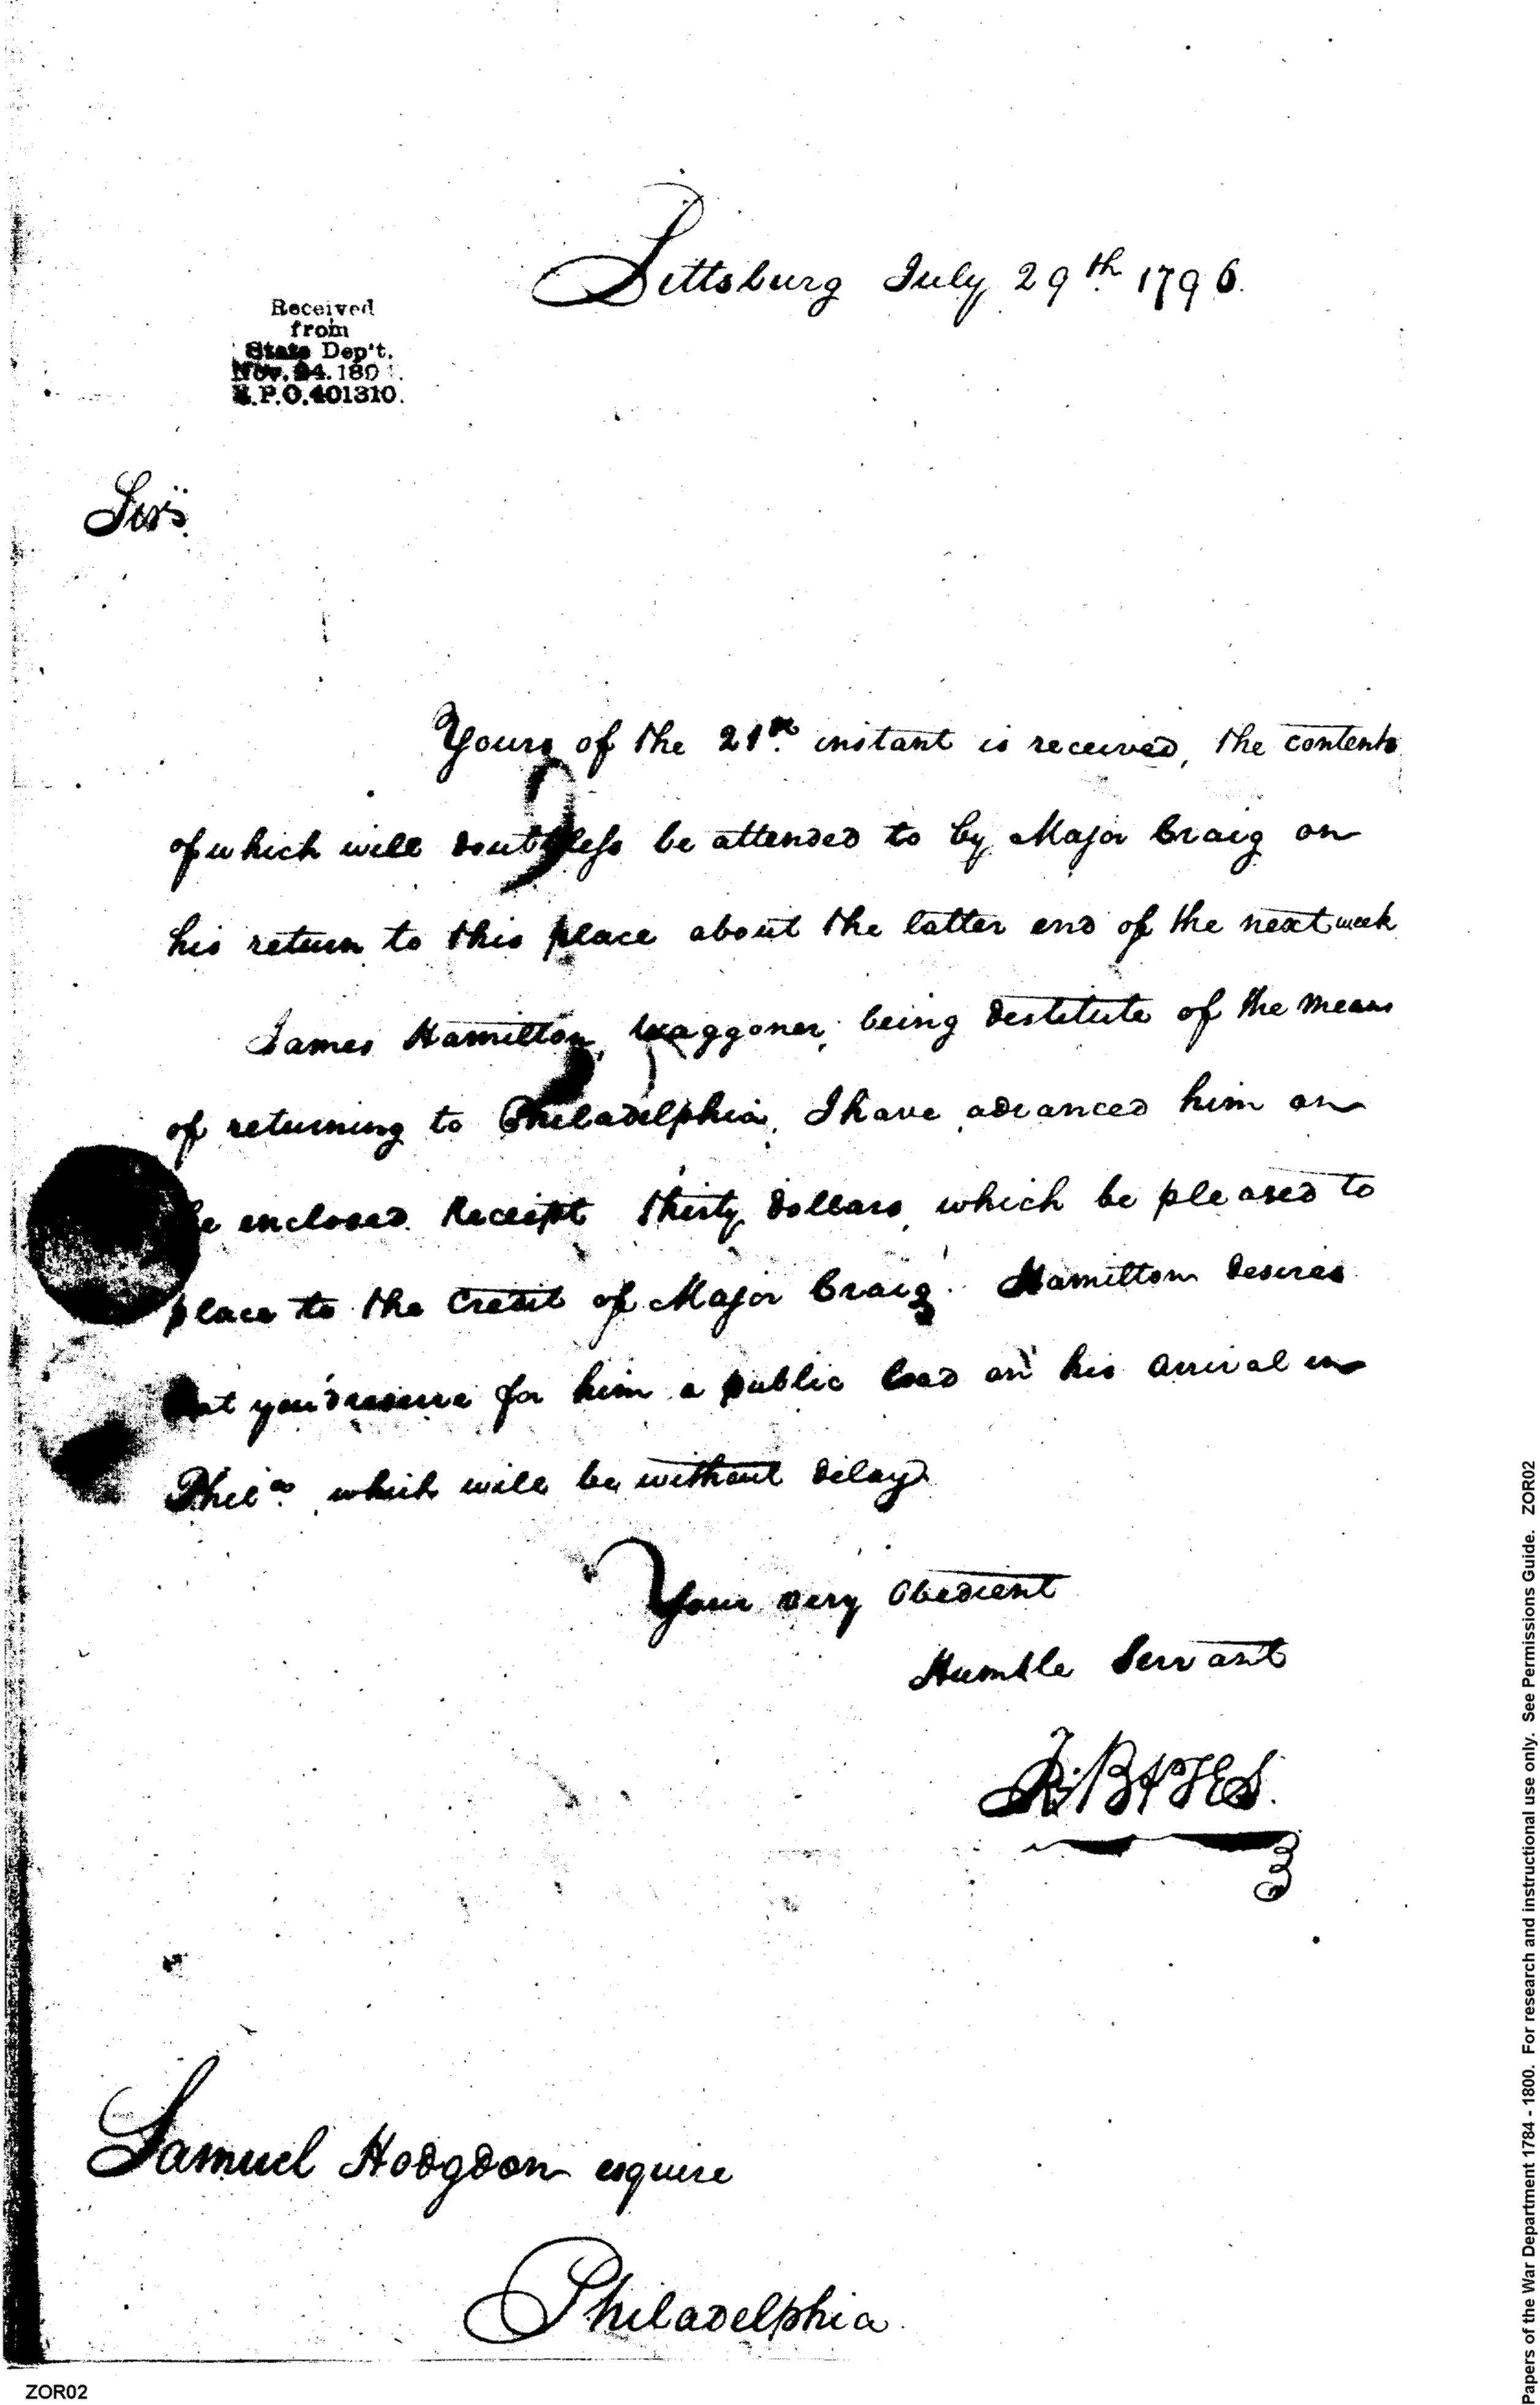 Pittsburg July 29th 1796.
Received
from
State Dep't.
Nov. 24. 180
R.P.O. 401310.
Sir
Yours of the 21st instant is received, the contents
of which will doubtless be attended to by Major Craig on
his return to this place about the latter end of the next week
James Hamilton, Waggoner, being destitute of the means
of returning to Philadelphia, I have advanced him on
he enclosed Receipt thirty dollars, which be pleased to
place to the Credit of Major Craig. Hamilton desires
that you'd reserve for him a public load on his arrival in
Phila. which will be without delay
Your very Obedient
Humble Servant
Samuel Hodgdon esquire
Philadelphia.
ZOR02
Papers of the War Department 1784 - 1800. For research and instructional use only. See Permissions Guide. ZOR02